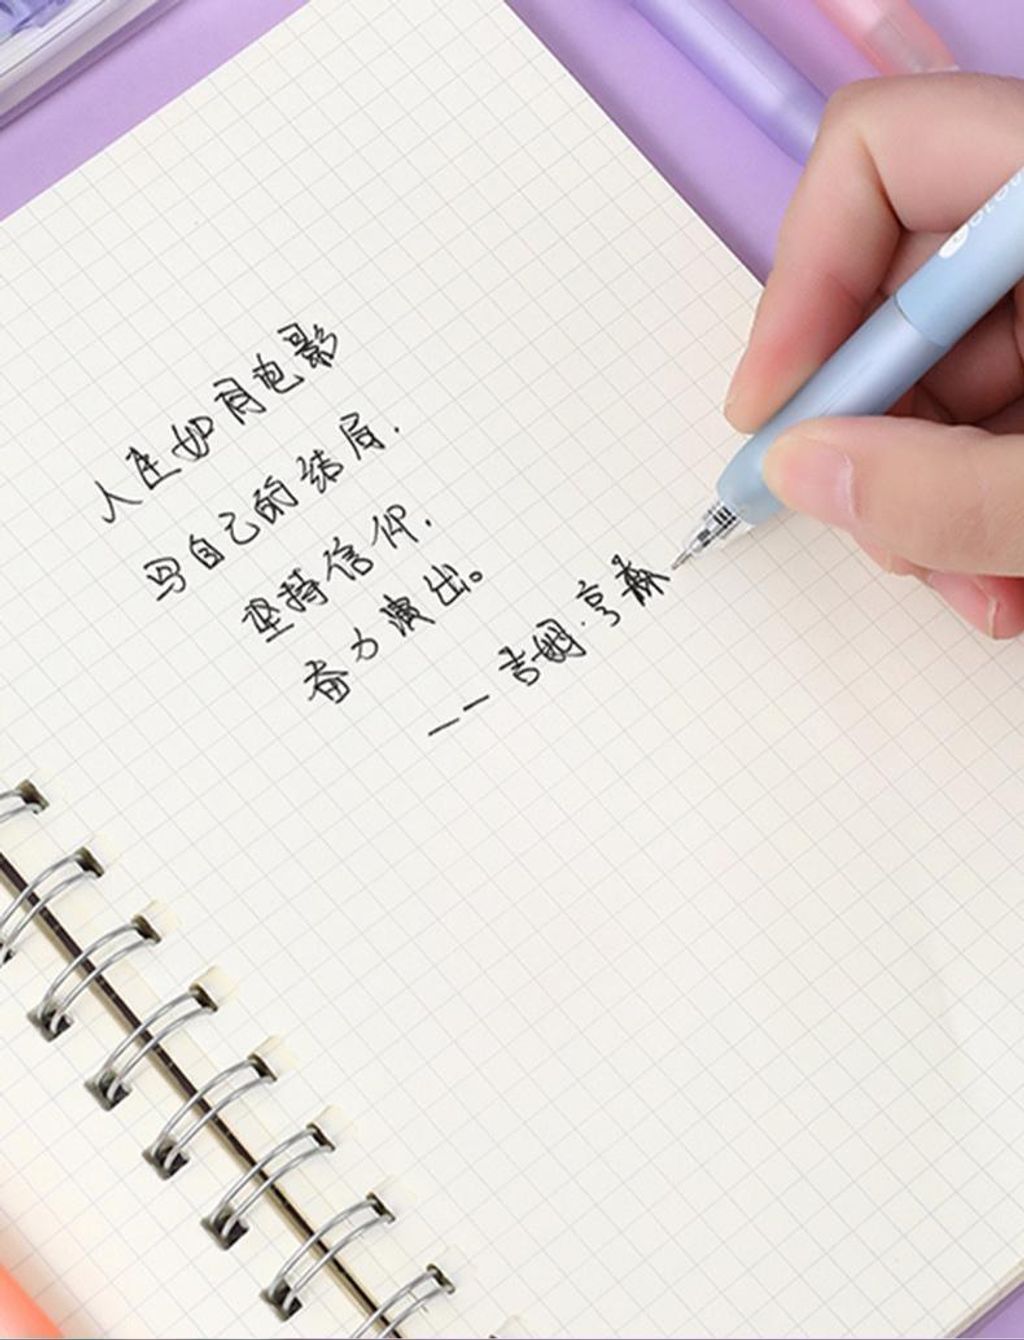 人生如同电影
写自己的结局.
坚持信仰.
奋力演出。
——吉姆·亨森